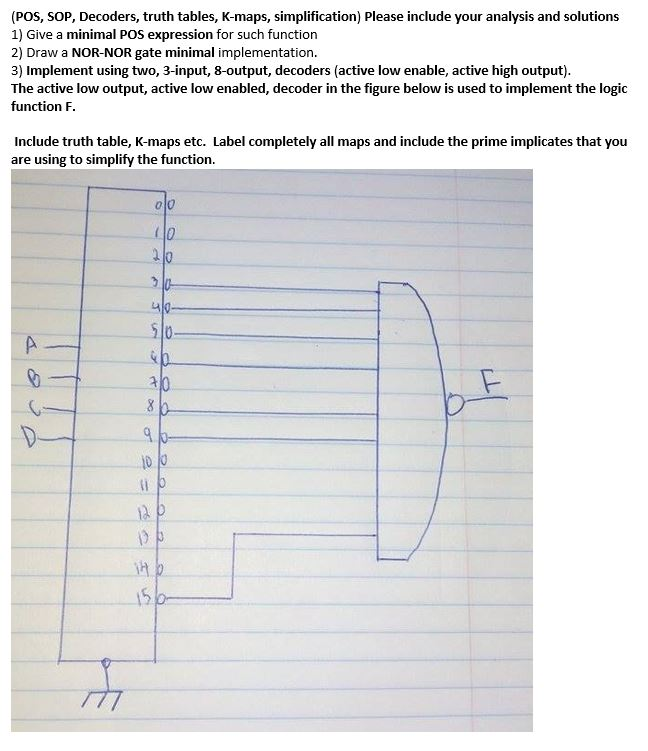 (POS, SOP, Decoders, truth tables, K-maps, simplification) Please include your analysis and solutions
1) Give a minimal POS expression for such function
2) Draw a NOR-NOR gate minimal implementation.
3) Implement using two, 3-input, 8-output, decoders (active low enable, active high output).
The active low output, active low enabled, decoder in the figure below is used to implement the logic
function F.
Include truth table, K-maps etc. Label completely all maps and include the prime implicates that you
are using to simplify the function.
0
1
2
3
4
5
6
7
8
9
10
11
12
13
14
15
A
B
C
D
F